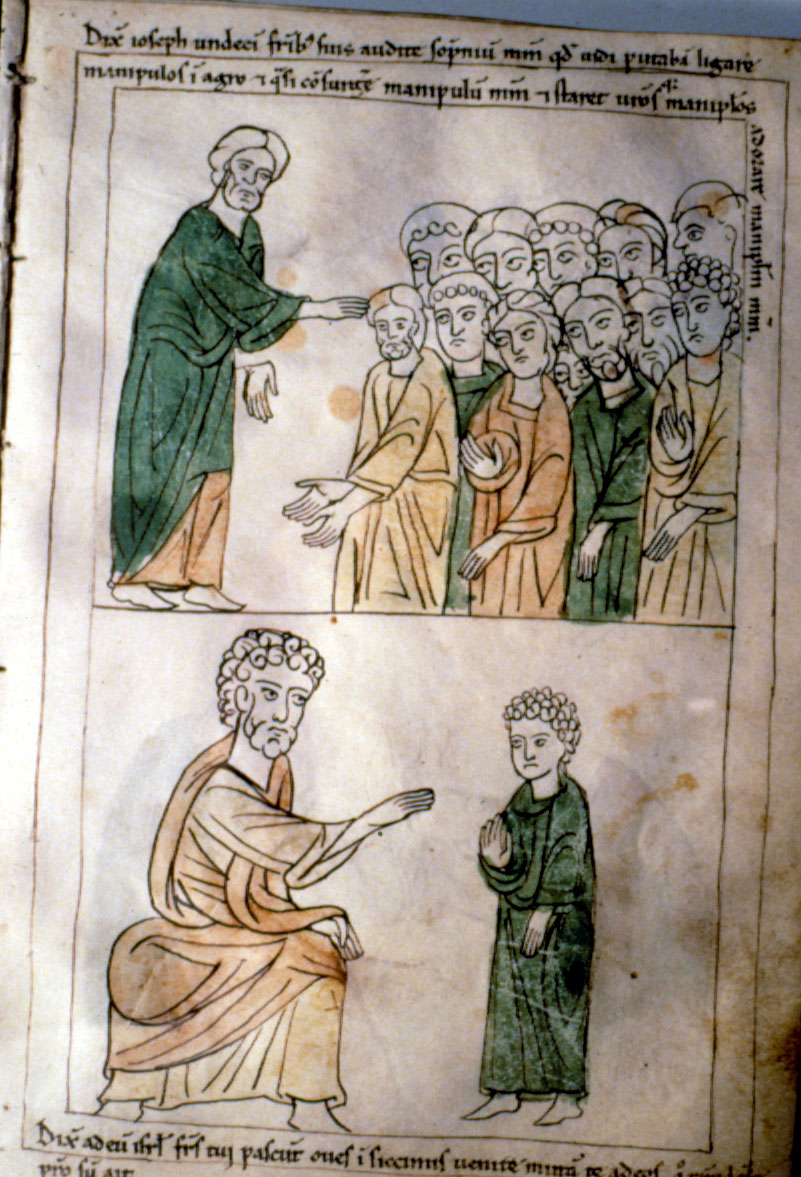 Dix̄ ioseph undeci frib; suis audite sop̄niū mm̄ qd̄ uidi putabā ligare
manipulos ī agro ⁊ q̄si cōsurge manipulū mm̄ ⁊ staret uros q; manip̄los
adorare manip̄lm mm̄.
Dix̄ ad eū isrl̄ frs̄ tui pascūt oues ī siccimis uenite mittā te ad eos